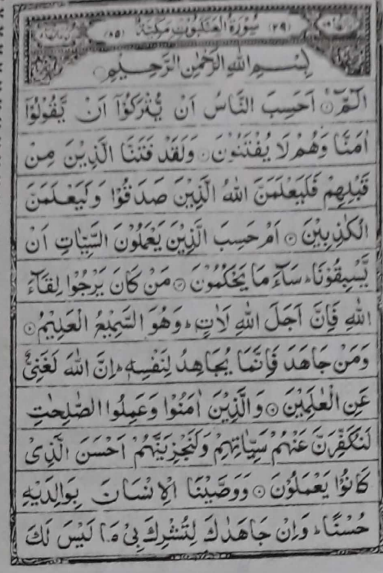 (٢٩) سُوْرَةُ الْعَنْكَبُوْتِ مَكِّيَّةٌ (٨٥)
بِسْمِ اللهِ الرَّحْمٰنِ الرَّحِيْمِ
الٓمّٓ ۚ اَحَسِبَ النَّاسُ اَنْ يُّتْرَكُوْٓا اَنْ يَّقُوْلُوْٓا
اٰمَنَّا وَهُمْ لَا يُفْتَنُوْنَ ۝ وَلَقَدْ فَتَنَّا الَّذِيْنَ مِنْ
قَبْلِهِمْ فَلَيَعْلَمَنَّ اللهُ الَّذِيْنَ صَدَقُوْا وَلَيَعْلَمَنَّ
الْكٰذِبِيْنَ ۝ اَمْ حَسِبَ الَّذِيْنَ يَعْمَلُوْنَ السَّيِّاٰتِ اَنْ
يَّسْبِقُوْنَا ؕ سَآءَ مَا يَحْكُمُوْنَ ۝ مَنْ كَانَ يَرْجُوْا لِقَآءَ
اللهِ فَاِنَّ اَجَلَ اللهِ لَاٰتٍ ؕ وَهُوَ السَّمِيْعُ الْعَلِيْمُ ۝
وَمَنْ جَاهَدَ فَاِنَّمَا يُجَاهِدُ لِنَفْسِهٖ ؕ اِنَّ اللهَ لَغَنِيٌّ
عَنِ الْعٰلَمِيْنَ ۝ وَالَّذِيْنَ اٰمَنُوْا وَعَمِلُوا الصّٰلِحٰتِ
لَنُكَفِّرَنَّ عَنْهُمْ سَيِّاٰتِهِمْ وَلَنَجْزِيَنَّهُمْ اَحْسَنَ الَّذِيْ
كَانُوْا يَعْمَلُوْنَ ۝ وَوَصَّيْنَا الْاِنْسَانَ بِوَالِدَيْهِ
حُسْنًا ؕ وَاِنْ جَاهَدٰكَ لِتُشْرِكَ بِيْ مَا لَيْسَ لَكَ